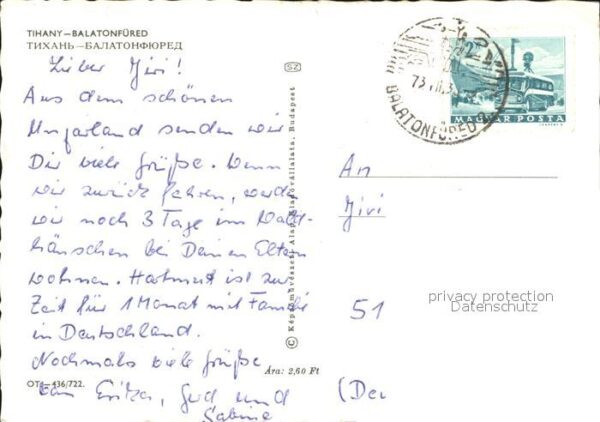 TIHANY—BALATONFÜRED
ТИХАНЬ—БАЛАТОНФЮРЕД
Lieber Jivi!
Aus dem schönen
Ungarland senden wir
Dir viele Grüße. Wenn
wir zurück fahren, werden
wir noch 3 Tage im Wald-
häuschen bei Deinen Eltern
wohnen. Hartmut ist zur
Zeit für 1 Monat mit Familie
in Deutschland.
Nochmals viele Grüße
von Erika, Gerd und
Sabine
OTI—436/722.
Ára: 2,60 Ft
© Képzőművészeti Alap Kiadóvállalata, Budapest
SZ
BALATONFÜRED
MAGYAR POSTA
An
Jivi
51
privacy protection
Datenschutz
(Deu